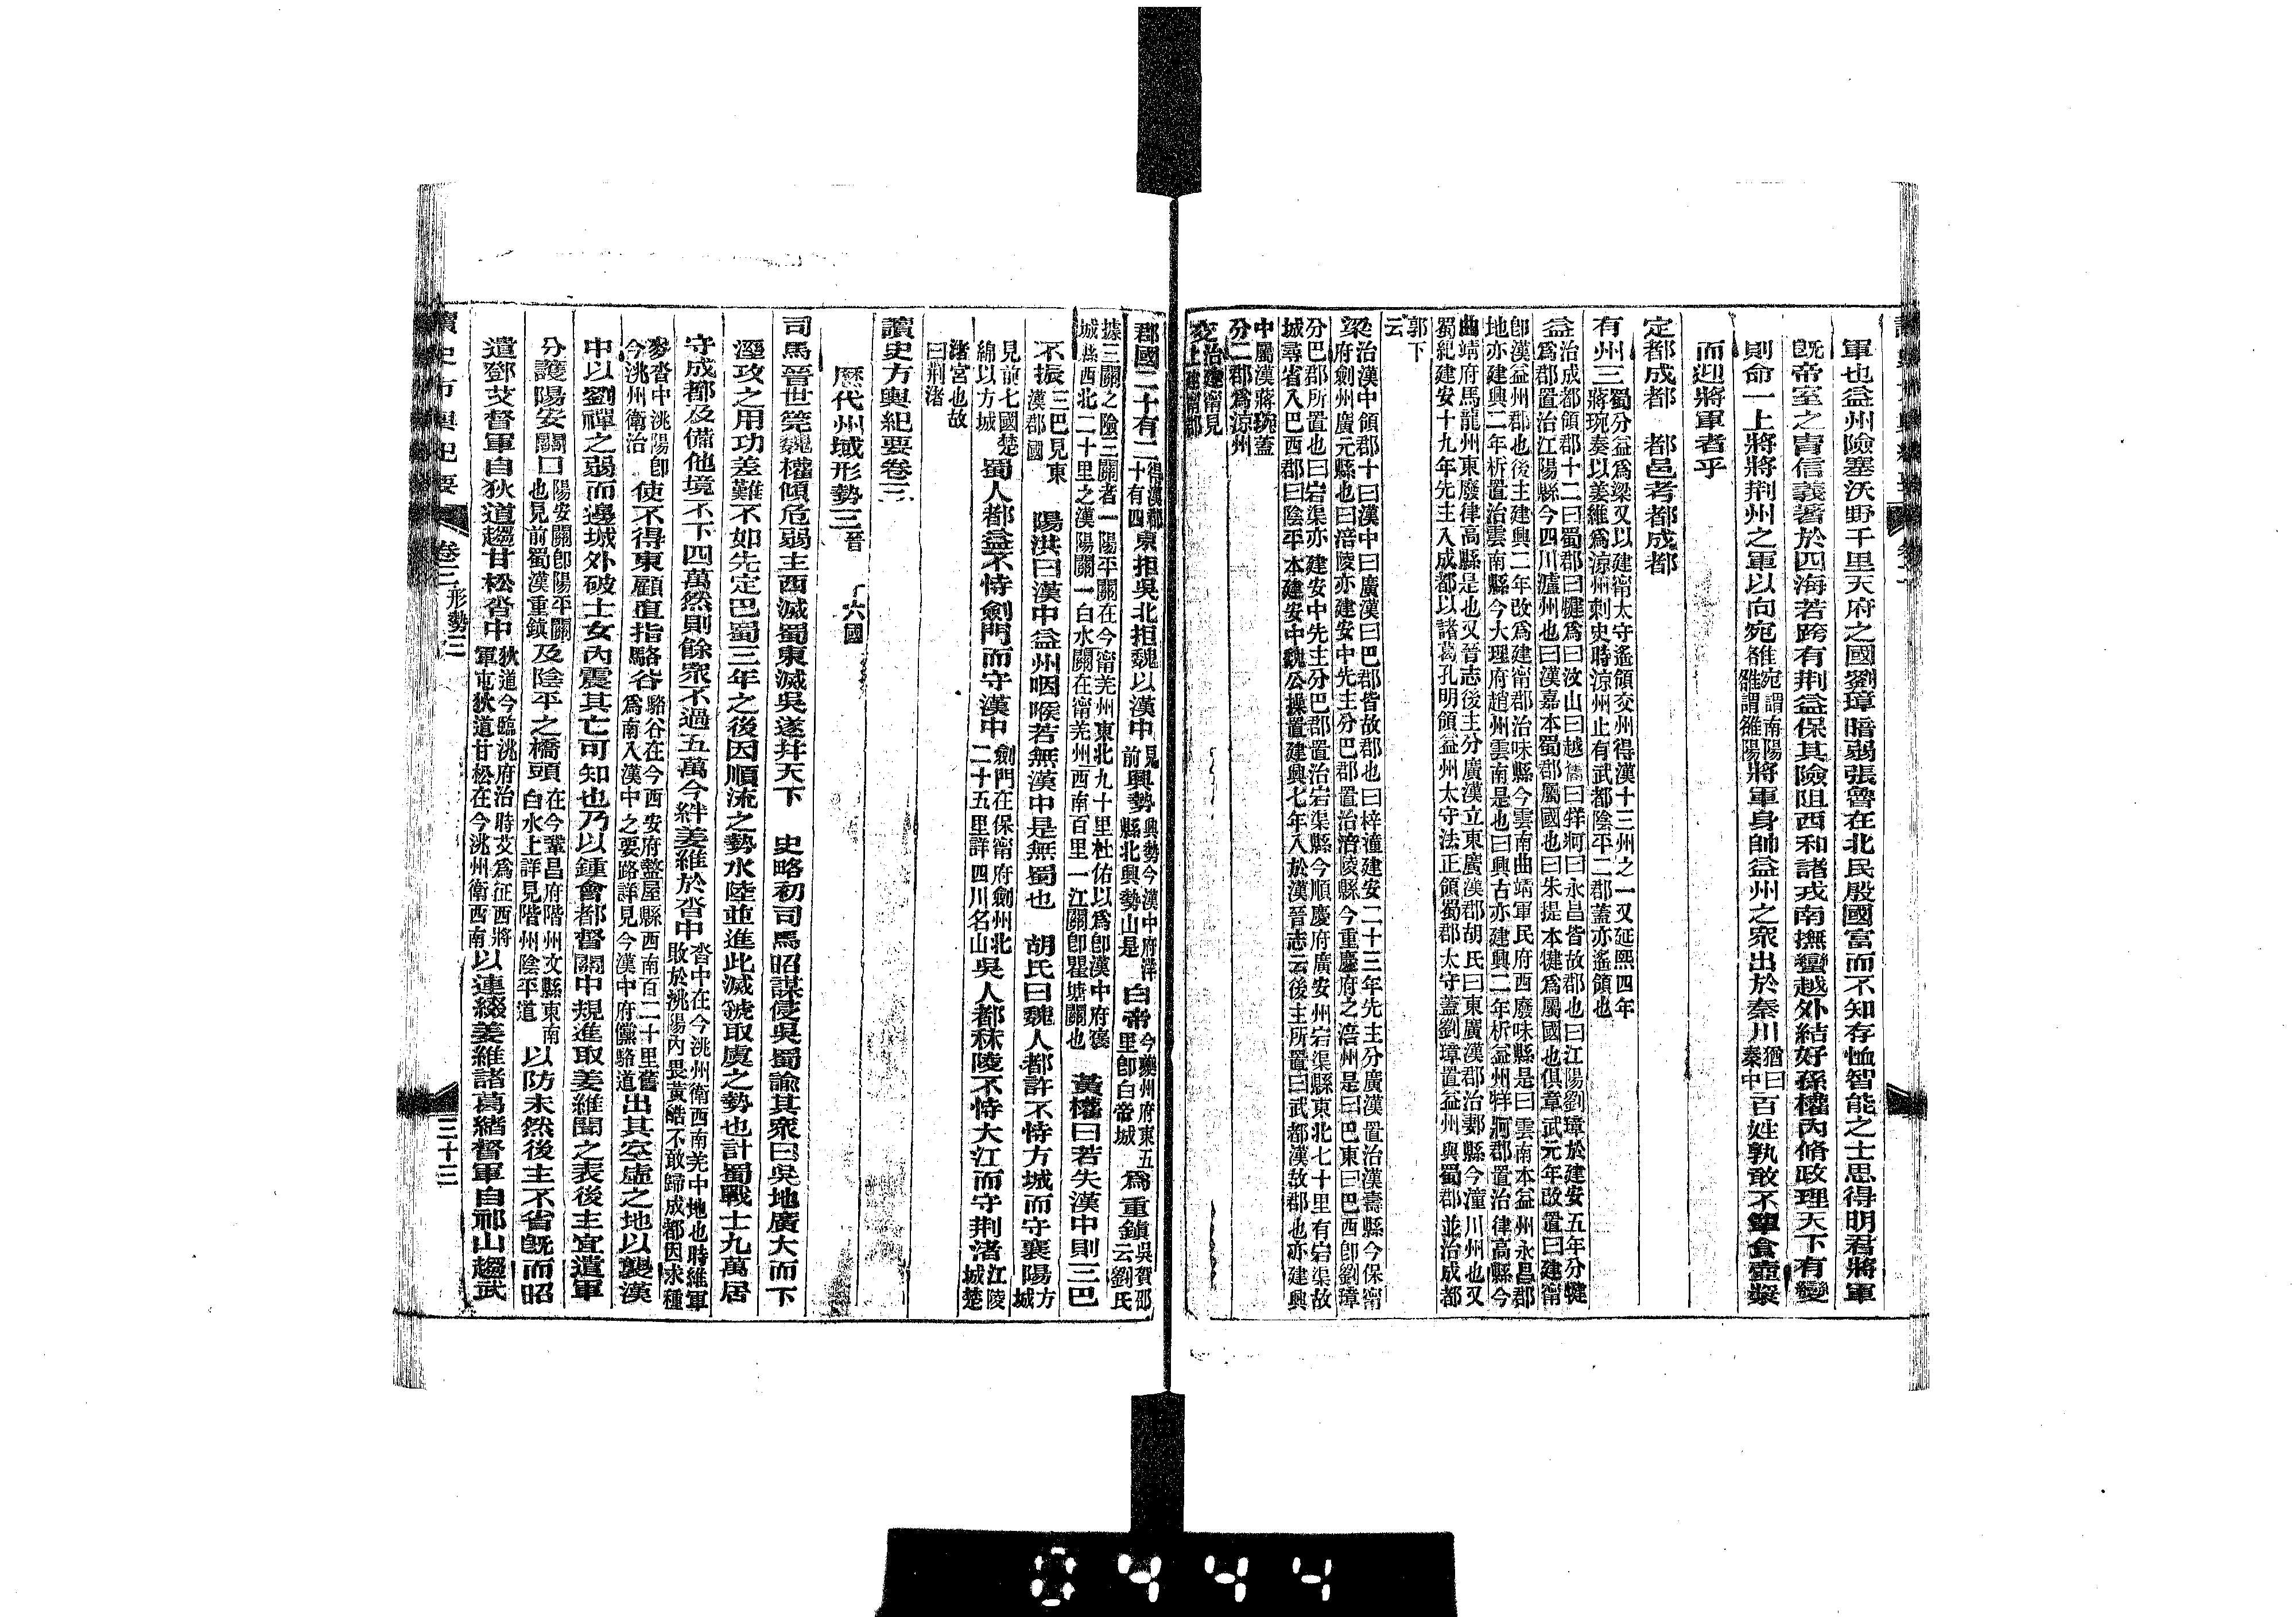 軍也益州險塞沃野千里天府之國劉璋暗弱張魯在北民殷國富而不知存恤智能之士思得明君將軍
既帝室之冑信義著於四海若跨有荆益保其險阻西和諸戎南撫蠻越外結好孫權內脩政理天下有變
則命一上將將荆州之軍以向宛雒宛謂南陽雒謂雒陽將軍身帥益州之衆出於秦川猶曰秦中百姓孰敢不簞食壺漿
而迎將軍者乎
定都成都　都邑考都成都
有州三蜀分益爲梁又以建甯太守遙領交州得漢十三州之一又延熙四年
蔣琬奏以姜維爲涼州刺史時涼州止有武都陰平二郡蓋亦遙領也
益治成都領郡十二曰蜀郡曰犍爲曰汶山曰越巂曰牂牁曰永昌皆故郡也曰江陽劉璋於建安五年分犍
爲郡置治江陽縣今四川瀘州也曰漢嘉本蜀郡屬國也曰朱提本犍爲屬國也俱章武元年改置曰建甯
卽漢益州郡也後主建興二年改爲建甯郡治味縣今雲南曲靖軍民府西廢味縣是曰雲南本益州永昌郡
地亦建興二年析置治雲南縣今大理府趙州雲南是也曰興古亦建興二年析益州牂牁郡置治律高縣今
曲靖府馬龍州東廢律高縣是也又晉志後主分廣漢立東廣漢郡胡氏曰東廣漢郡治郪縣今潼川州也又
蜀紀建安十九年先主入成都以諸葛孔明領益州太守法正領蜀郡太守蓋劉璋置益州與蜀郡並治成都
郭下
云
梁治漢中領郡十曰漢中曰廣漢曰巴郡皆故郡也曰梓潼建安二十三年先主分廣漢置治漢壽縣今保甯
府劍州廣元縣也曰涪陵亦建安中先主分巴郡置治涪陵縣今重慶府之涪州是曰巴東曰巴西卽劉璋
分巴郡所置也曰宕渠亦建安中先主分巴郡置治宕渠縣今順慶府廣安州宕渠縣東北七十里有宕渠故
城尋省入巴西郡曰陰平本建安中魏公操置建興七年入於漢晉志云後主所置曰武都漢故郡也亦建興
中屬漢蔣琬蓋
分二郡爲涼州
交治建甯見
上建甯郡
郡國二十有二得漢郡十有四東拒吳北拒魏以漢中見前興勢興勢今漢中府洋縣北興勢山是白帝今夔州府東五里卽白帝城爲重鎮吳賀邵云劉氏
據三關之險三關者一陽平關在今甯羌州東北九十里杜佑以爲卽漢中府褒
城縣西北二十里之漢陽關一白水關在甯羌州西南百里一江關卽瞿塘關也　黃權曰若失漢中則三巴
不振三巴見東漢郡國　陽洪曰漢中益州咽喉若無漢中是無蜀也　胡氏曰魏人都許不恃方城而守襄陽方城
見前七國楚綿以方城蜀人都益不恃劍門而守漢中劍門在保甯府劍州北二十五里詳四川名山吳人都秣陵不恃大江而守荆渚江陵城楚
渚宮也故
曰荆渚
讀史方輿紀要卷三
歷代州域形勢三晉　十六國
司馬晉世筦魏權傾危弱主西滅蜀東滅吳遂幷天下　史略初司馬昭謀侵吳蜀諭其衆曰吳地廣大而下
溼攻之用功差難不如先定巴蜀三年之後因順流之勢水陸並進此滅虢取虞之勢也計蜀戰士九萬居
守成都及備他境不下四萬然則餘衆不過五萬今絆姜維於沓中沓中在今洮州衛西南羌中地也時維軍敗於洮陽內畏黃皓不敢歸成都因求種
麥沓中洮陽卽今洮州衛治使不得東顧直指駱谷駱谷在今西安府盩厔縣西南百二十里舊爲南入漢中之要路詳見今漢中府儻駱道出其空虛之地以襲漢
中以劉禪之弱而邊城外破士女內震其亡可知也乃以鍾會都督關中規進取姜維聞之表後主宜遣軍
分護陽安關口陽安關卽陽平關也見前蜀漢重鎮及陰平之橋頭在今鞏昌府階州文縣東南白水上詳見階州陰平道以防未然後主不省既而昭
遣鄧艾督軍自狄道趨甘松沓中狄道今臨洮府治時艾爲征西將軍屯狄道甘松在今洮州衛西南以連綴姜維諸葛緒督軍自祁山趨武
讀史方輿紀要　卷三形勢三　三十三
0444